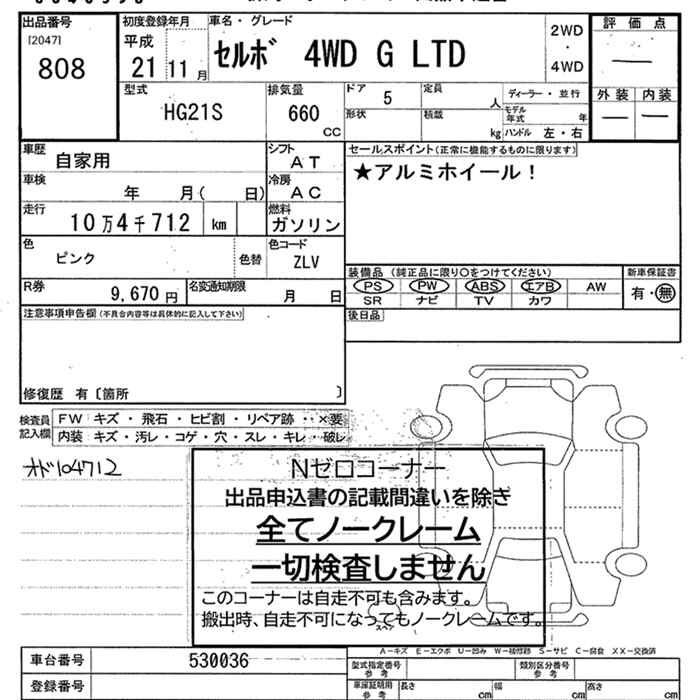 出品番号
[2047]
808
初度登録年月
平成
21 11 月
車名・グレード
セルボ 4WD G LTD
2WD
・
4WD
評価点
—
外装 内装
— —
型式
HG21S
排気量
660
CC
ドア 5
定員
人
形状
積載
kg
ディーラー・並行
モデル年式 年
ハンドル 左・右
車歴
自家用
シフト
AT
車検
年 月( 日)
冷房
AC
走行
10万4千712 km
燃料
ガソリン
色
ピンク
色替
色コード
ZLV
R券
9,670 円
名変通知期限
月 日
セールスポイント(正常に機能するものに限ります)
★アルミホイール!
装備品 (純正品に限り○をつけてください)
PS PW ABS エアB AW
SR ナビ TV カワ
新車保証書
有・無
後日品
注意事項申告欄(不具合内容等は具体的に記入して下さい)
修復歴 有〔箇所 〕
検査員記入欄
FW キズ・飛石・ヒビ割・リペア跡・・×要
内装 キズ・汚レ・コゲ・穴・スレ・キレ・破レ
オド104712
Nゼロコーナー
出品申込書の記載間違いを除き
全てノークレーム
一切検査しません
このコーナーは自走不可も含みます。
搬出時、自走不可になってもノークレームです。
スペア
A-キズ E-エクボ U-凹み W-補修跡 S-サビ C-腐食 XX-交換済
車台番号 530036
登録番号
型式指定番号 参考
類別区分番号 参考
車庫証明用 参考
長さ cm
幅 cm
高さ cm